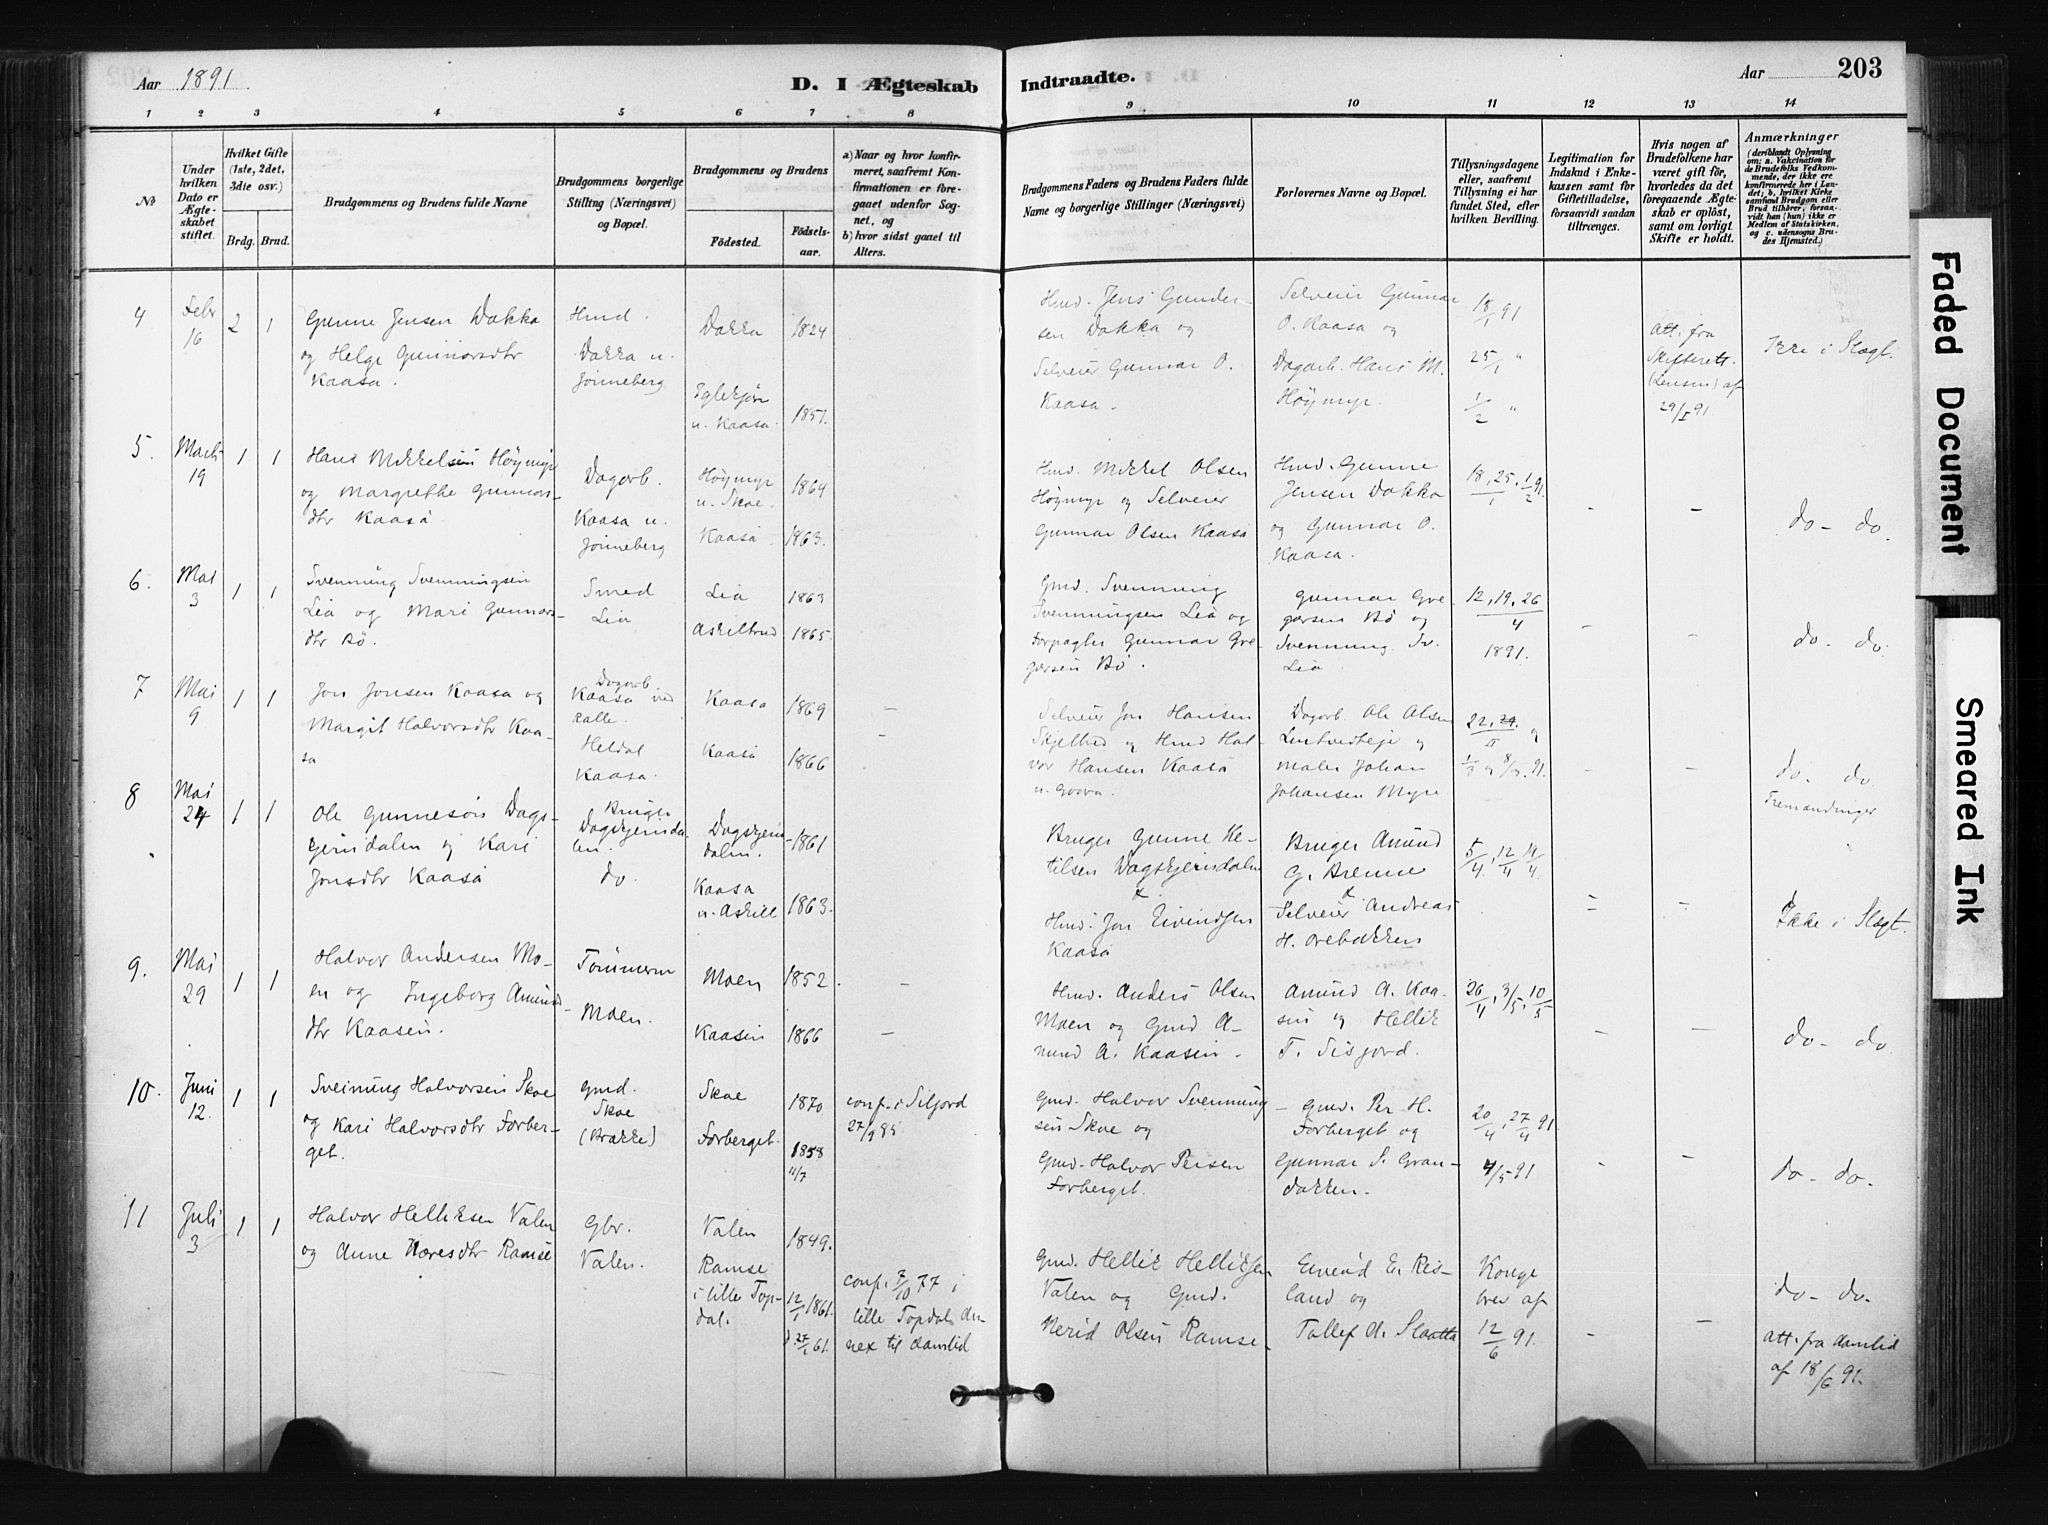 Aar 1891.
D. I Ægteskab
Indtraadte.
Aar
203
1 2 3 4 5 6 7 8 9 10 11 12 13 14
No
Under hvilken Dato er Ægteskabet stiftet.
Hvilket Gifte (1ste, 2det, 3die osv.)
Brdg. Brud.
Brudgommens og Brudens fulde Navne
Brudgommens borgerlige Stilling (Næringsvei) og Bopæl.
Brudgommens og Brudens
Födested.
Födselsaar.
a) Naar og hvor konfirmeret, saafremt Konfirmationen er foregaaet udenfor Sognet, og
b) hvor sidst gaaet til Alters.
Brudgommens Faders og Brudens Faders fulde Navne og borgerlige Stillinger (Næringsvei)
Forlovernes Navne og Bopæl.
Tillysningsdagene eller, saafremt Tillysning ei har fundet Sted, efter hvilken Bevilling.
Legitimation for Indskud i Enkekassen samt for Giftetilladelse, forsaavidt saadan tiltrænges.
Hvis nogen af Brudefolkene har været gift før, hvorledes da det foregaaende Ægteskab er oplöst, samt om lovligt Skifte er holdt.
Anmærkninger
(deriblandt Oplysning om: a. Vakcination for de Brudefolks Vedkommende, der ikke ere konfirmerede her i Landet; b. hvilket Kirkesamfund Brudgom eller Brud tilhörer, forsaavidt han (hun) ikke er Medlem af Statskirken, og c. udensogns Brudes Hjemsted.)
4
Febr 16
2 1
Gunne Jensen Dakka
og Helge Gunnarsdtr
Kaasa.
Hmd.
Dakka u.
Jønneberg
Dakka 1824
u. Kaasa 1851.
Hmd. Jens Gundersen Dakka og
Selveier Gunnar O.
Kaasa.
Selveier Gunnar
O. Kaasa og
Dagarb. Hans M.
Höymyr.
18/1 91
25/1 "
1/2 "
Att. fra
Skifterett.
(Lensm) af
29/1 91
Ikke i Slægt.
5.
Marts 19
1 1
Hans Mikkelsen Høymyr
og Margrethe Gunnarsdtr Kaasa.
Dagarb.
Kaasa u.
Jønneberg
Høymyr
u. Skoe. 1864
Kaasa. 1863.
Hmd. Mikkel Olsen
Høymyr og Selveier
Gunnar Olsen Kaasa
Hmd. Gunne
Jensen Dakka
og Gunnar O.
Kaasa.
18, 25/1, 1/2 91.
- -
do - do.
6.
Mai 3
1 1
Svenning Svenningsen
Lia og Mari Gunnarsdtr Bö.
Smed
Lia
Lia 1863
Askiltrud 1865.
Gmd. Svenning
Svenningsen Lia og
Forpagter Gunnar Gregersen Bö.
Gunnar Gregersen Bö og
Svenning Sv.
Lia.
12, 19, 26/4
1891.
- -
do - do.
7
Mai 9
1 1
Jon Jonsen Kaasa og
Margit Halvorsdtr Kaasa
Dagarb.
Kaasa ved
Heldal
Kaasa.
Kaasa 1869 -
Kaasa 1866 -
Selveier Jon Hansen
og Hmd Halvor Hansen Kaasa
Dagarb. Ole Olsen
Lintvedteje og
Maler Johan
Johansen Myre
22, 29/ og
1/3 og 8/3 91.
- -
do - do
Tremændinger
8
Mai 24
1 1
Ole Gunnesøn Dagsgjerisdalen og Kari
Jonsdtr Kaasa
Bruger
do.
1861
Kaasa
u. Askill 1863.
Bruger Gunne Ketilsen Dagsgjerisdalen
&
Hmd. Jon Eivindsen
Kaasa
Bruger Amund
G. Brenne
&
Selveier Andreas
H. Orebakken
5/4, 12/4 19/4.
- -
Ikke i Slægt.
9.
Mai 29
1 1
Halvor Andersen Moen og Ingeborg Amundsdtr Kaasen.
Tømmerm
Moen.
Moen 1852. -
Kaasen 1866 -
Hmd. Anders Olsen
Moen og Gmd Amund A. Kaasen.
Amund A. Kaasen og Hellik
T. Sisjord.
26/4, 3/5, 10/5
- -
do - do
10.
Juni 12.
1 1
Sveinung Halvorsen Skoe
og Kari Halvorsdtr Forberget.
Gmd.
Skoe
(Brække)
Skoe 1870
Forberget. 1858
11/7
conf. i Siljord
27/9 85
Gmd. Halvor Svenningsen Skoe og
Gmd. Halvor Persen
Forberget.
Gmd. Per H.
Forberget og
Gunnar S. Granbakken.
20/4, 27/4 91
4/5 91
- -
do - do.
11
Juli 3
1 1
Halvor Helliksen Valen
og Anne Næresdtr Ramse
Gbr.
Valen.
Valen 1849.
Ramse
i lille Topdal.
12/1 1861.
d. 27/1 61.
conf. 7/10 77 i
lille Topdal Annex til Aamlid
Gmd. Hellik Helliksen
Valen og Gmd.
Nerid Olsen Ramse.
Eivind E. Risland og
Tallef A. Slaatta
Kongebrev af
12/6 91.
- -
do - do.
att. fra Aamlid
af 18/6 91.
Faded Document
Smeared Ink